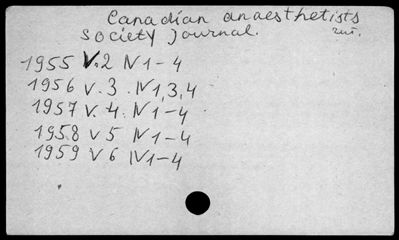 Canadian anaesthetists
society journal.
1955 V.2 N1-4
1956 V.3. N1,3,4
1957 V.4. N1-4
1958 V5 N1-4
1959 V6 N1-4